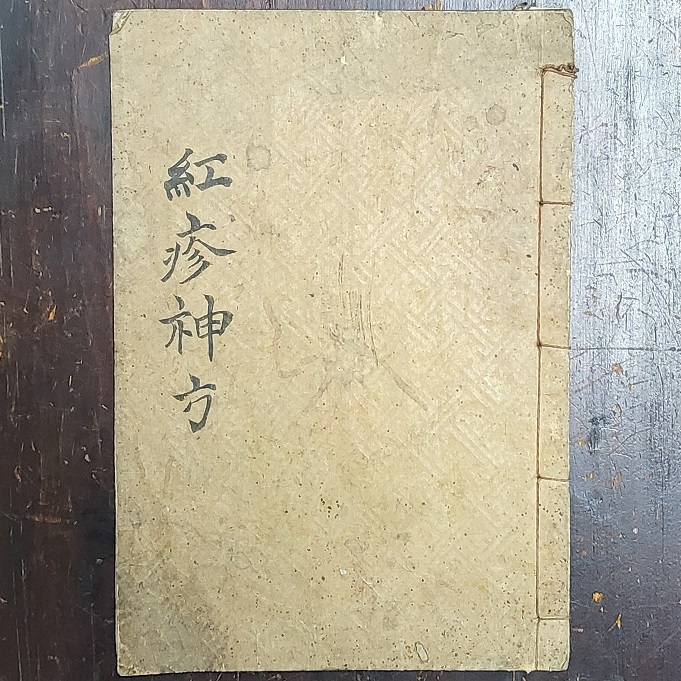 紅疹神方